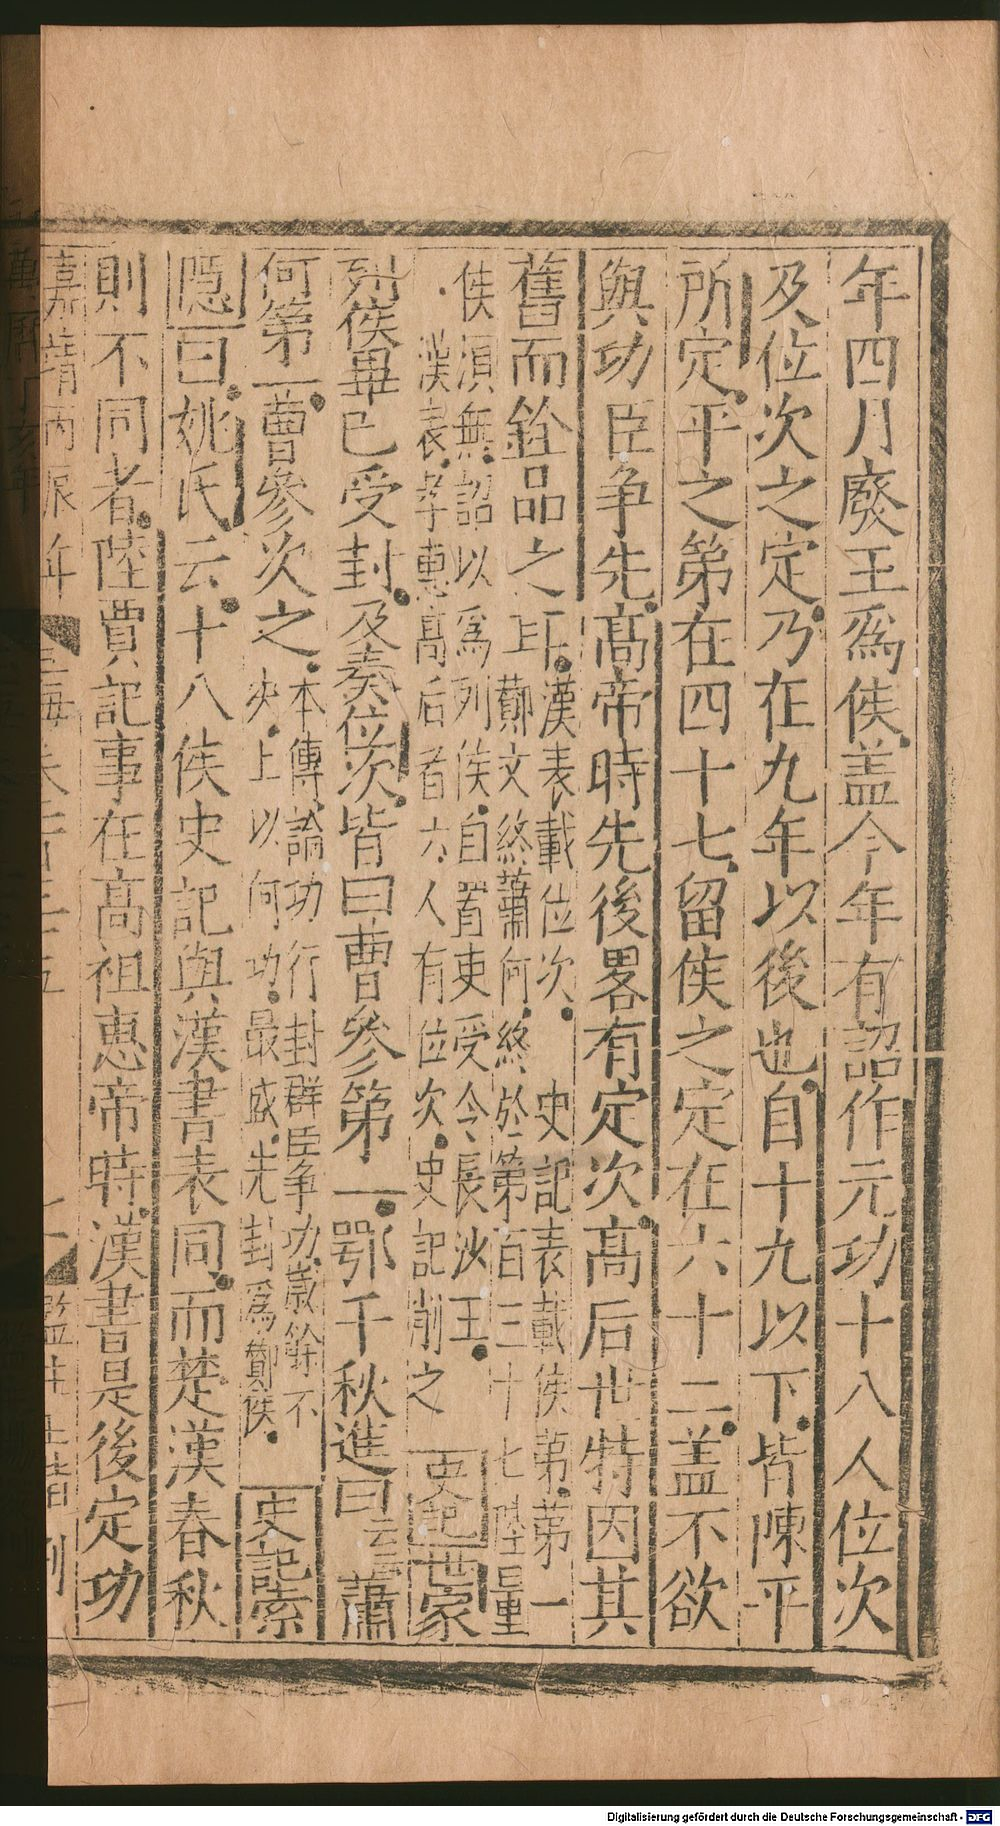 年四月廢王爲侯盖今年有詔作元功十八人位次
及位次之定乃在九年以後也自十九以下皆陳平
所定平之第在四十七留侯之定在六十二盖不欲
與功臣争先髙帝時先後畧有定次髙后世特因其
舊而銓品之耳
漢表載位次史記表載侯第第一
鄼文終蕭何終於第百三十七陸量
侯湏無詔以爲列侯自置吏受令長沙王
漢表孝惠髙后者六人有位次史記削之
史記世家
列侯畢已受封及奏位次皆曰曹參第一鄂千秋進曰云云蕭
何第一曹參次之
本傳論功行封群臣争功歲餘不
决上以何功最盛先封爲鄼侯
史記索
隠曰姚氏云十八侯史記與漢書表同而楚漢春秋
則不同者陸賈記事在髙祖惠帝時漢書是後定功
嘉靖丙辰年
玉海
監生
刊
萬曆丁亥年
Digitalisierung gefördert durch die Deutsche Forschungsgemeinschaft - DFG